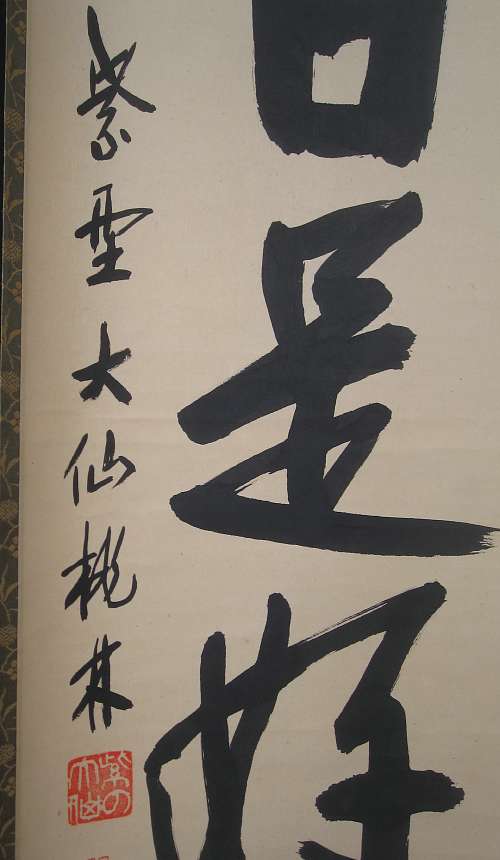 日是好
紫野大仙桃林